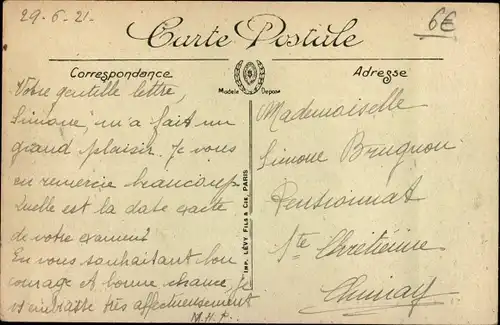 29-6-21.
6€
Carte Postale
Correspondance
Adresse
Modèle Déposé
Votre gentille lettre,
Simone, m'a fait un
grand plaisir. Je vous
en remercie beaucoup.
Quelle est la date exacte
de votre examen?
En vous souhaitant bon
courage et bonne chance, je
vs embrasse très affectueusement
IMP. LÉVY FILS & CIE, PARIS
Mademoiselle
Simone Brugnon
Pensionnat
Ste Chrétienne
Chimay